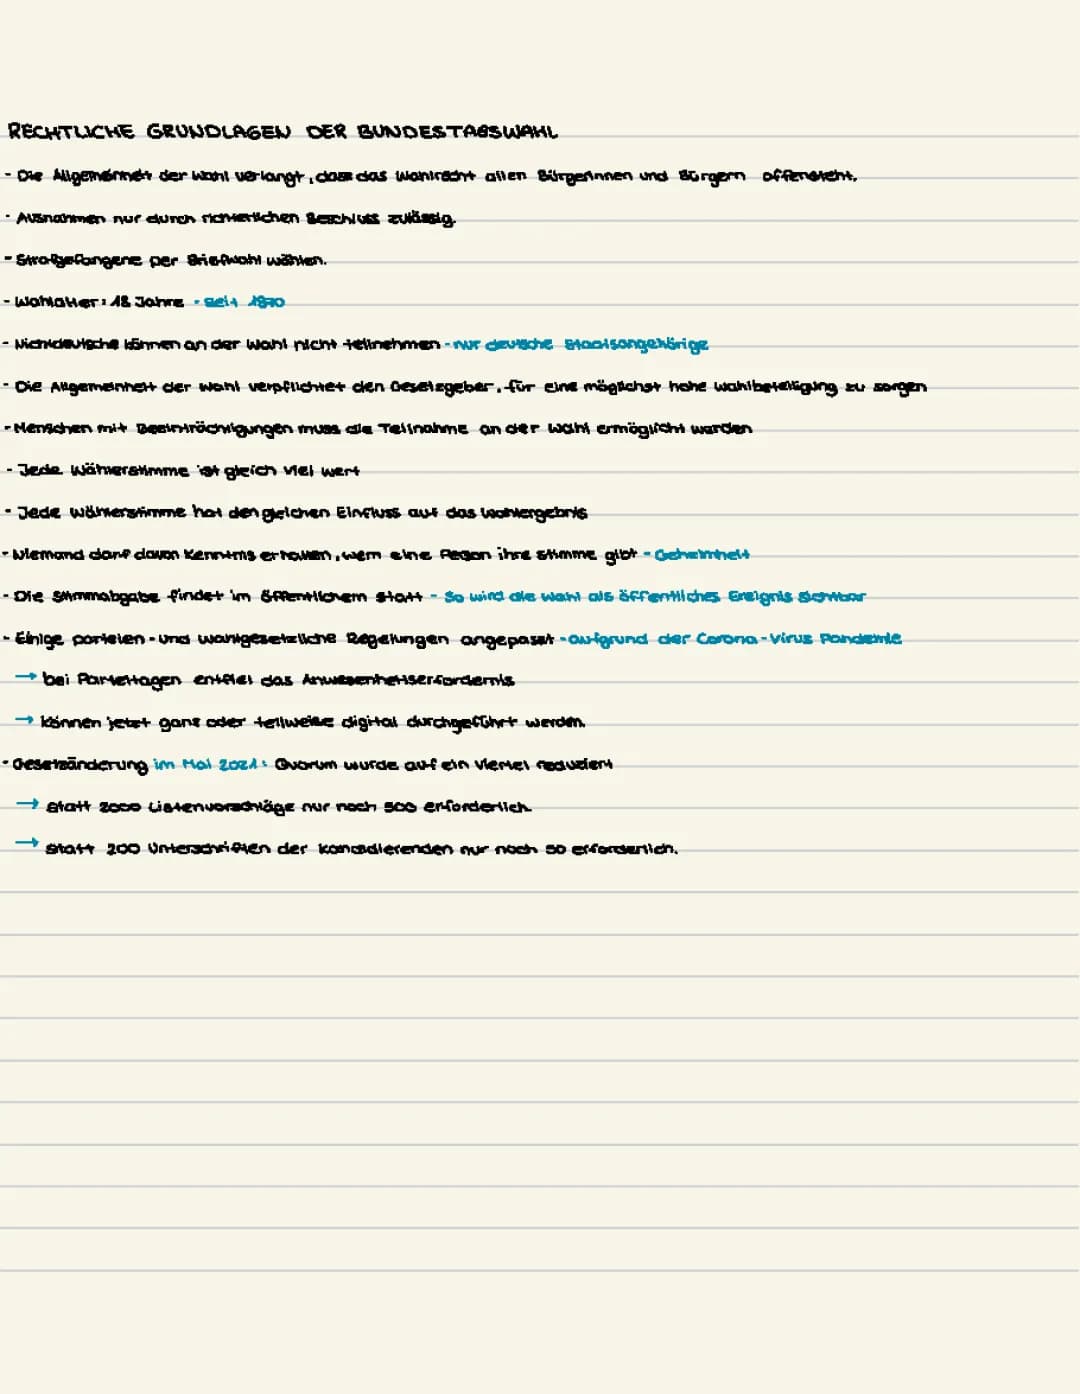 RECHTLICHE GRUNDLAGEN DER BUNDESTAGSWAHL
- Die Allgemeinheit der Wahl verlangt, dass das Wahlrecht allen Bürgerinnen und Bürgern offensteht.
- Ausnahmen nur durch richterlichen Beschluss zulässig.
- Strafgefangene per Briefwahl wählen.
- Wahlalter: 18 Jahre - seit 1970
- Nichtdeutsche können an der Wahl nicht teilnehmen - nur deutsche Staatsangehörige
- Die Allgemeinheit der Wahl verpflichtet den Gesetzgeber, für eine möglichst hohe Wahlbeteiligung zu sorgen
- Menschen mit Beeinträchtigungen muss die Teilnahme an der Wahl ermöglicht werden
- Jede Wählerstimme ist gleich viel wert
- Jede Wählerstimme hat den gleichen Einfluss auf das Wahlergebnis
- Niemand darf davon Kenntnis erhalten, wem eine Person ihre Stimme gibt - Geheimheit
- Die Stimmabgabe findet im öffentlichem statt - So wird die Wahl als öffentliches Ereignis sichtbar
- Einige parteien- und wahlgesetzliche Regelungen angepasst - aufgrund der Corona-Virus Pandemie
→ bei Parteitagen entfiel das Anwesenheitserfordernis
→ können jetzt ganz oder teilweise digital durchgeführt werden.
- Gesetzänderung im Mai 2021: Quorum wurde auf ein Viertel reduziert
→ statt 2000 Listenvorschläge nur noch 500 erforderlich.
→ statt 200 Unterschriften der Kandidierenden nur noch 50 erforderlich.